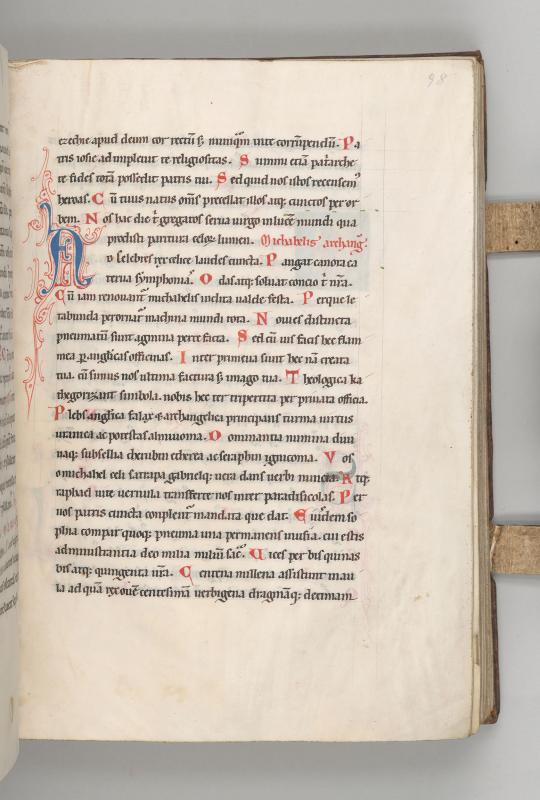 98
ezechie apud deum cor rectũ ẜ nunqͫ uite corrupendũ. Pa
tris iosie adimpleuit te religiositas. Summi etiã patriarche
te fides totã possedit patris tui. Sed quid nos istos recensem⁹
heroas. Cũ tuus natus oms̃ precellat illos atqꝫ cunctos per or
bem. Nos hac die t̃ gregatos serua uirgo in lucẽ mundi qua
prodisti paritura celoꝝ lumen. Michahelis archangͥ
AD celebres rex celice laudes cuncta. Pangat canora ca
terua symphonia. Odas atqꝫ soluat concio t̃ nr̃a.
Cũ iam renouant᷑ michahelis inclita ualde festa. Per que le
tabunda perornat᷑ machina mundi tota. Nouies distincta
pneumatũ sunt agmina per te facta. Sed cũ uis facis hec flam
mea ꝑ anglicas officinas. Inter primeua sunt hec nã creata
tua. cũ simus nos ultima factura ẜ imago tua. Theologica ka
thegorizant simbola. nobis hec ter tripertita per priuata officia.
Plebs anglica falax ⁊ archangelica principans turma uirtus
uranica ac potestas almiuoma. Dominantia numina diui
naqꝫ subsellia cherubin etherea ac seraphin ignicoma. Vos
o michahel celi satrapa gabrielqꝫ uera dans uerbi nuncia. Atqꝫ
raphael uite uernula transferte nos inter paradisicolas. Per
uos patris cuncta complent᷑ mandata que dat. Eiusdem so
phia compar quoqꝫ pneuma una permanens in usia. cui estis
administrantia deo milia miliũ sac̃. Vices per bis quinas
bis atqꝫ quingenta ur̃a. Centena millena assistunt in au
la ad quã rex ouẽ centesimã uerbigena dragmãqꝫ decimam